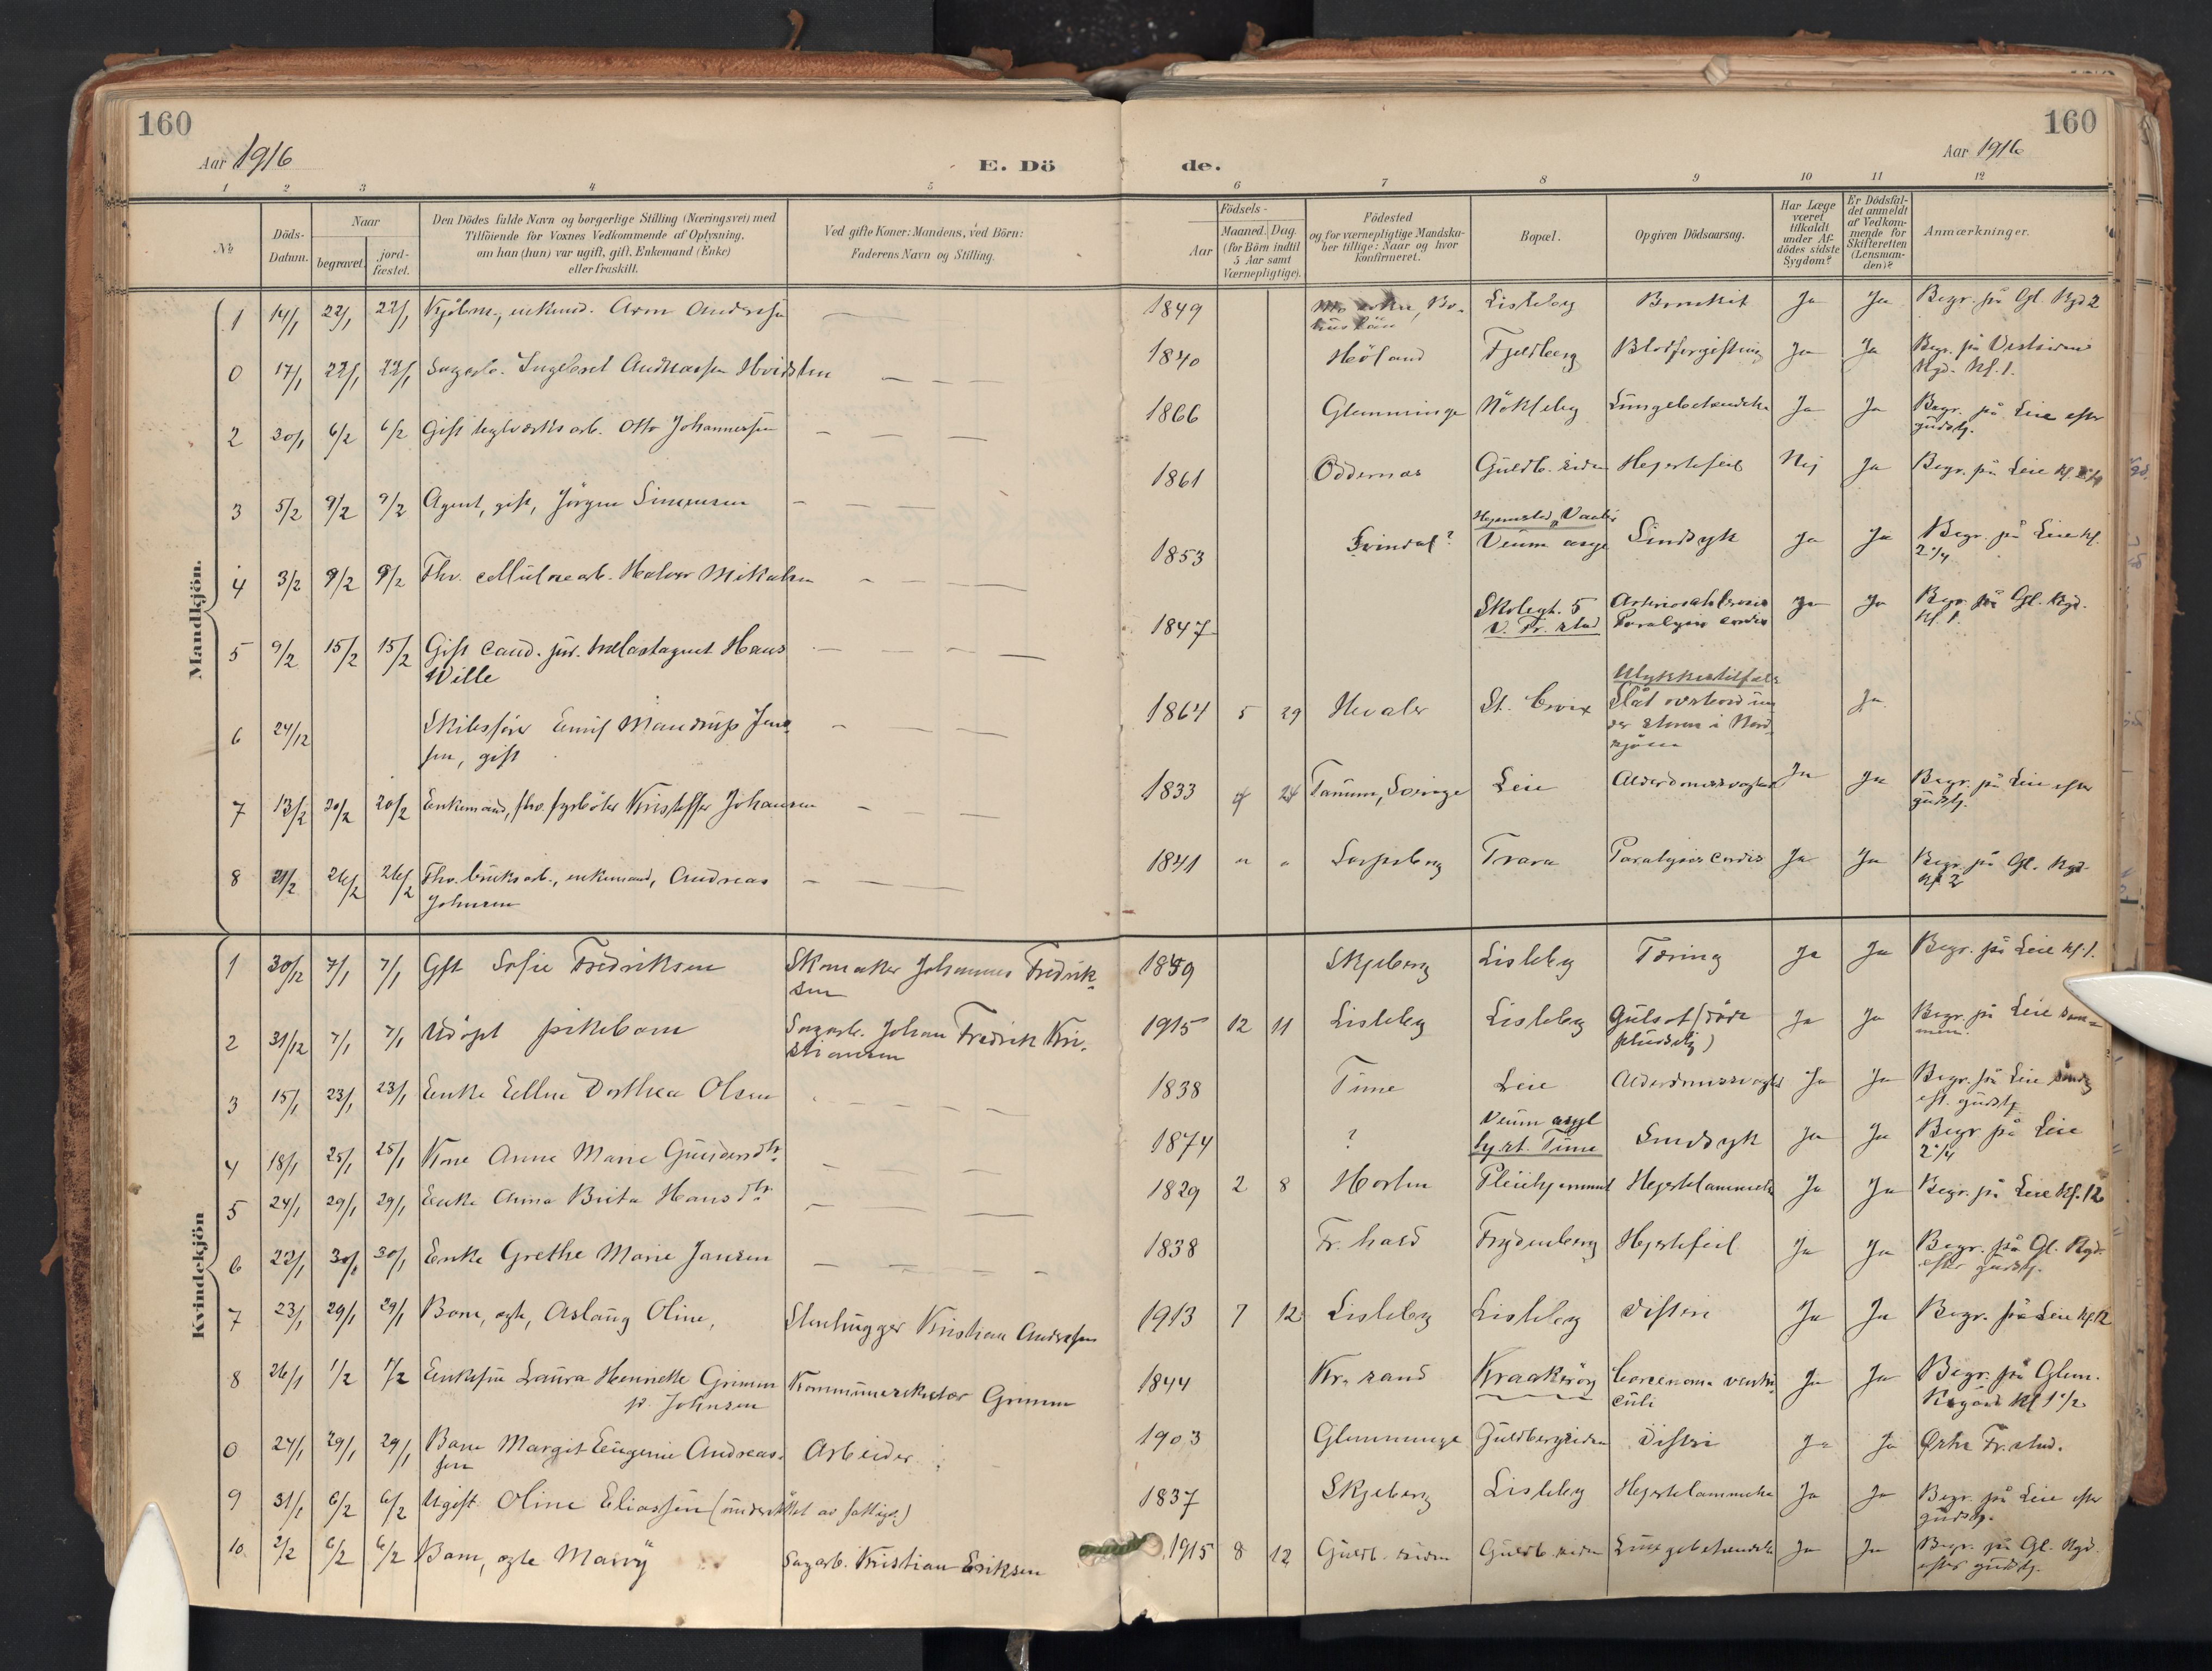 160
160
Aar 1916
E. Dö
de.
Aar 1916
1 2 3 4 5 6 7 8 9 10 11 12
№
Döds-
Datum.
Naar
begravet.
jord-
fæstet.
Den Dödes fulde Navn og borgerlige Stilling (Næringsvei) med
Tilföiende for Voxnes Vedkommende af Oplysning,
om han (hun) var ugift, gift, Enkemand (Enke)
eller fraskilt.
Ved gifte Koner: Mandens, ved Börn:
Faderens Navn og Stilling.
Födsels-
Aar
Maaned. Dag.
(for Børn indtil
5 Aar samt
Værnepligtige).
Födested
og for værnepligtige Mandska-
ber tillige: Naar og hvor
konfirmeret.
Bopæl.
Opgiven Dödsaarsag.
Har Læge
været
tilkaldt
under Af-
dödes sidste
Sygdom?
Er Dödsfal-
det anmeldt
af Vedkom-
mende for
Skifteretten
(Lensman-
den)?
Anmærkninger.
Mandkjön.
1 14/1 22/1 22/1 enkemd. Aron Andersen 1849 Lisleby Bronkit Ja Ja Begr. på Gl. Kgd 2
0 17/1 22/1 22/1 Sagarb. Ingebret Andreassen Hvidsten 1840 Höland Fjeldberg Blodforgiftning Ja Ja Begr. på Vestsidens
Kgd. Kl. 1.
2 30/1 6/2 6/2 Gift teglverksarb. Otto Johannessen 1866 Glemminge Nökleby Lungebetændelse Ja Ja Begr. på Leie efter
gudstj.
3 5/2 9/2 9/2 Agent, gift, Jörgen Simensen 1861 Oddernes Guldb. siden Hejertefeil Nej Ja Begr. på Leie
4 3/2 9/2 9/2 Fhv. cellulosearb. Halvor Mikalsen 1853 Svindal? Hjemsted, Vaaler
Veum asyl Sindsyk Ja Ja Begr. på Leie kl.
2 1/4
5 9/2 15/2 15/2 Gift Cand. jur. trælastagent Hans
Wille 1847 Skolegt. 5
V. Fr. stad Arteriosclerosis
Paralysis cordis Ja Ja Begr. på Gl. Kgd.
Kl. 1.
6 24/12 Skibsförer Emil Mandrup Jen-
sen, gift 1864 5 29 Hvaler St. Croix Ulykkestilfælde
Slåt overbord un
der storm i Nord-
sjöen Ja
7 13/2 20/2 20/2 Enkemand, fhv. fyrböter Kristoffer Johansen 1833 4 24 Tanum, Sverige Leie Alderdomssvaghet Ja Ja Begr. på Leie efter
gudstj.
8 21/2 26/2 26/2 Fhv. bruksarb., enkemand, Andreas
Johnsen 1841 " " Sarpsborg Trara Paralysis cordis Ja Ja Begr. på Gl. Kgd.
Kl 2
Kvindekjön
1 30/12 7/1 7/1 Gift Sofie Fredriksen Skomaker Johannes Fredrik-
sen 1859 Skjeberg Lisleby Tæring Ja Ja Begr. på Leie kl. 1.
2 31/12 7/1 7/1 Udöpt pikebarn Sagarb. Johan Fredrik Kri-
stiansen 1915 12 11 Lisleby Lisleby Gulsot (döde
pludselig) Ja Ja Begr. på Leie
3 15/1 23/1 23/1 Enke Elline Dorthea Olsen 1838 Tune Leie Alderdomssvaghet Ja Ja Begr. på Leie
eft. gudstj.
4 18/1 25/1 25/1 Kone Anne Marie 1874 ? Veum asyl
Tune Sindsyk Ja Ja Begr på Leie
2 1/4
5 24/1 29/1 29/1 Enke Anna Brita Hansdtr. 1829 2 8 Horten Pleiehjemmet Hejertelammelse Ja Ja Begr. på Leie Kl. 12
6 22/1 30/1 30/1 Enke Grethe Marie Jansen 1838 Fr. hald Frydenberg Hejertefeil Ja Ja Begr. på Gl. Kgd.
efter gudstj.
7 23/1 29/1 29/1 Barn, egte, Aslaug Oline, Stenhugger Kristian Andersen 1913 7 12 Lisleby Lisleby Difteri Ja Ja Begr. på Leie kl. 12
8 26/1 1/2 1/2 Enkefru Laura Henriette Grimm
f. Johnsen Grimm 1844 Kr. sand Kraakeröy Carcinoma ventri-
culi Ja Ja Begr. på Glem.
Kgård Kl 1 1/2
0 24/1 29/1 29/1 Barn Margit Eugenie Andreas-
sen Arbeider 1903 Glemminge Guldbergsiden Difteri Ja Ja Östre Fr. stad.
9 31/1 6/2 6/2 Ugift Oline Eliassen (understöttet av fattigv.) 1837 Skjeberg Lisleby Hejertelammelse Ja Ja Begr. på Leie efter
gudstj.
10 2/2 6/2 6/2 Barn, egte Marry Sagarb. Kristian Eriksen 1915 8 12 Guldb. siden Guldb. siden Lungebetændelse Ja Ja Begr. på Gl. Kgd.
efter gudstj.